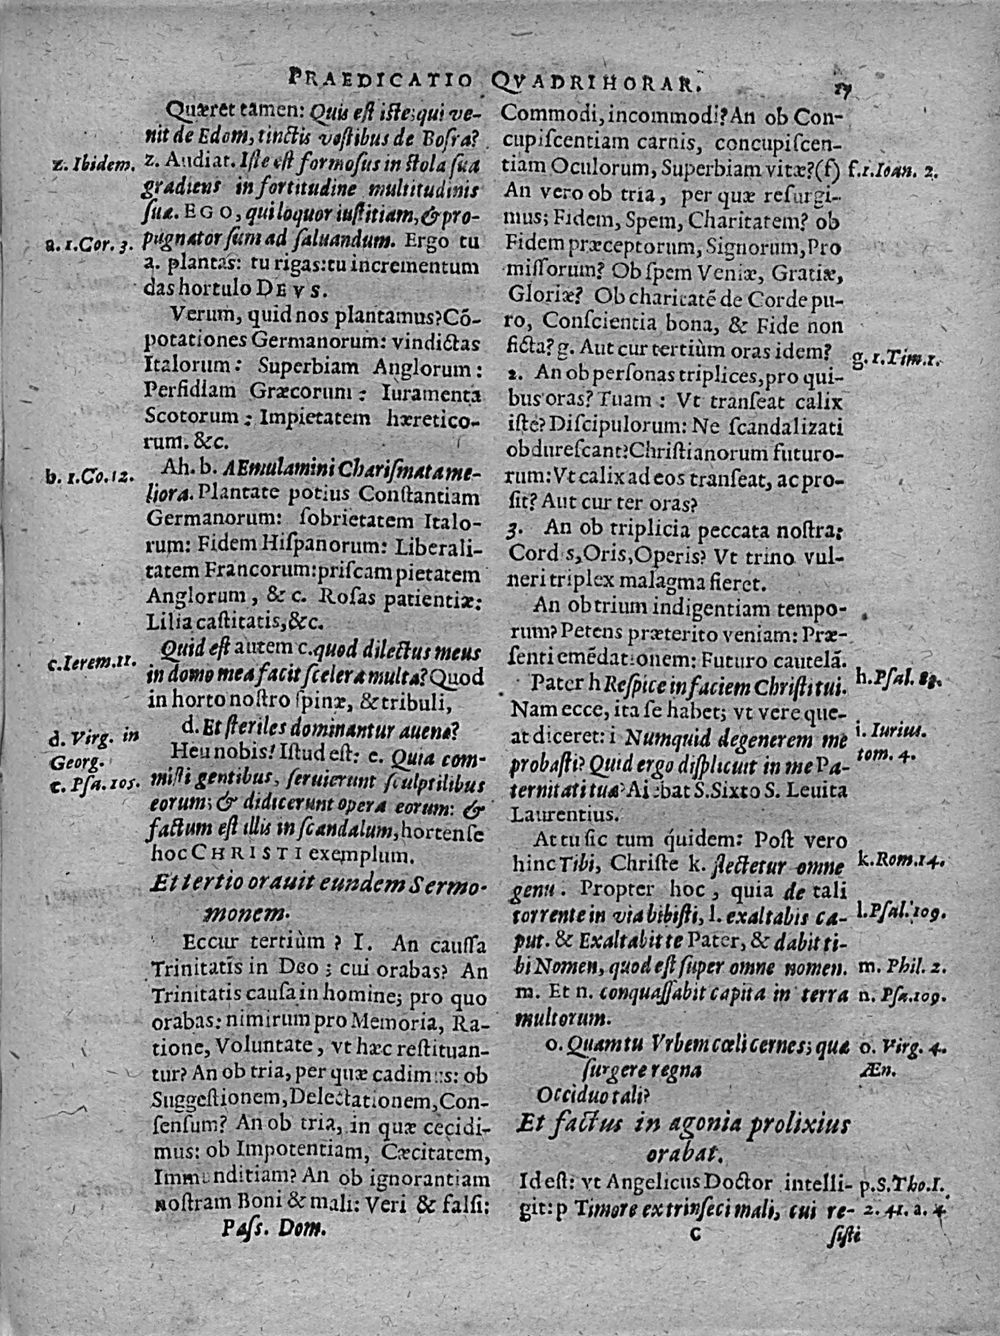 PRAEDICATIO QVADRIHORAR.
17
Quæret tamen: Quis eſt iſte; qui ve-
nit de Edom, tinctis veſtibus de Boſra?
z. Audiat. Iſte eſt formoſus in ſtola ſua
gradiens in fortitudine multitudinis
ſuæ. EGO, qui loquor iuſtitiam, & pro-
pugnator ſum ad ſaluandum. Ergo tu
a. plantas: tu rigas: tu incrementum
das hortulo DEVS.
Verum, quid nos plantamus? Cõ-
potationes Germanorum: vindictas
Italorum: Superbiam Anglorum:
Perfidiam Græcorum: Iuramenta
Scotorum: Impietatem hæretico-
rum. &c.
Ah. b. AEmulamini Chariſmata me-
liora. Plantate potius Conſtantiam
Germanorum: ſobrietatem Italo-
rum: Fidem Hiſpanorum: Liberali-
tatem Francorum: priſcam pietatem
Anglorum, & c. Roſas patientiæ:
Lilia caſtitatis, &c.
Quid eſt autem c. quod dilectus meus
in domo mea facit ſcelera multa? Quod
in horto noſtro ſpinæ, & tribuli,
d. Et ſteriles dominantur auenæ?
Heu nobis! Iſtud eſt: e. Quia com-
miſti gentibus, ſeruierunt ſculptilibus
eorum; & didicerunt opera eorum: &
factum eſt illis in ſcandalum, hortenſe
hoc CHRISTI exemplum.
Et tertio orauit eundem Sermo-
monem.
Ec cur tertiùm? I. An cauſſa
Trinitatis in Deo; cui orabas? An
Trinitatis cauſa in homine; pro quo
orabas: nimirum pro Memoria, Ra-
tione, Voluntate, vt hæc reſtituan-
tur? An ob tria, per quæ cadimus: ob
Suggeſtionem, Delectationem, Con-
ſenſum? An ob tria, in quæ cecidi-
mus: ob Impotentiam, Cæcitatem,
Immunditiam? An ob ignorantiam
noſtram Boni & mali: Veri & falſi:
Paſſ. Dom.
z. Ibidem.
a. 1. Cor. 3.
b. 1. Co. 12.
c. Ierem. 11.
d. Virg. in
Georg.
e. Pſa. 105.
Commodi, incommodi? An ob Con-
cupiſcentiam carnis, concupiſcen-
tiam Oculorum, Superbiam vitæ? (f)
An vero ob tria, per quæ reſurgi-
mus; Fidem, Spem, Charitatem? ob
Fidem præceptorum, Signorum, Pro
miſſorum? Ob ſpem Veniæ, Gratiæ,
Gloriæ? Ob charitatẽ de Corde pu-
ro, Conſcientia bona, & Fide non
ficta? g. Aut cur tertiùm oras idem?
2. An ob perſonas triplices, pro qui-
bus oras? Tuam: Vt tranſeat calix
iſte? Diſcipulorum: Ne ſcandalizati
obdureſcant? Chriſtianorum futuro-
rum: Vt calix ad eos tranſeat, ac pro-
ſit? Aut cur ter oras?
3. An ob triplicia peccata noſtra:
Cordis, Oris, Operis? Vt trino vul-
neri triplex malagma fieret.
An ob trium indigentiam tempo-
rum? Petens præterito veniam: Præ-
ſenti emẽdationem: Futuro cautelã.
Pater h Reſpice in faciem Chriſti tui.
Nam ecce, ita ſe habet; vt vere que-
at diceret: i Numquid degenerem me
probaſti? Quid ergo diſplicuit in me Pa-
ternitati tuæ? Aiebat S. Sixto S. Leuita
Laurentius.
At tu ſic tum quidem: Poſt vero
hinc Tibi, Chriſte k. flectetur omne
genu. Propter hoc, quia de tali
torrente in via bibiſti, l. exaltabis ca-
put. & Exaltabit te Pater, & dabit ti-
bi Nomen, quod eſt ſuper omne nomen.
m. Et n. conquaſſabit capita in terra
multorum.
o. Quam tu Vrbem cœli cernes; quæ
ſurgere regna
Occiduo tali?
Et factus in agonia prolixius
orabat.
Id eſt: vt Angelicus Doctor intelli-
git: p Timore extrinſeci mali, cui re-
C
ſiſti
f. 1. Ioan. 2.
g. 1. Tim. 1.
h. Pſal. 83.
i. Iurius.
tom. 4.
k. Rom. 14.
l. Pſal. 109.
m. Phil. 2.
n. Pſa. 109.
o. Virg. 4.
Æn.
p. S. Tho. I.
2. 41. a. 4